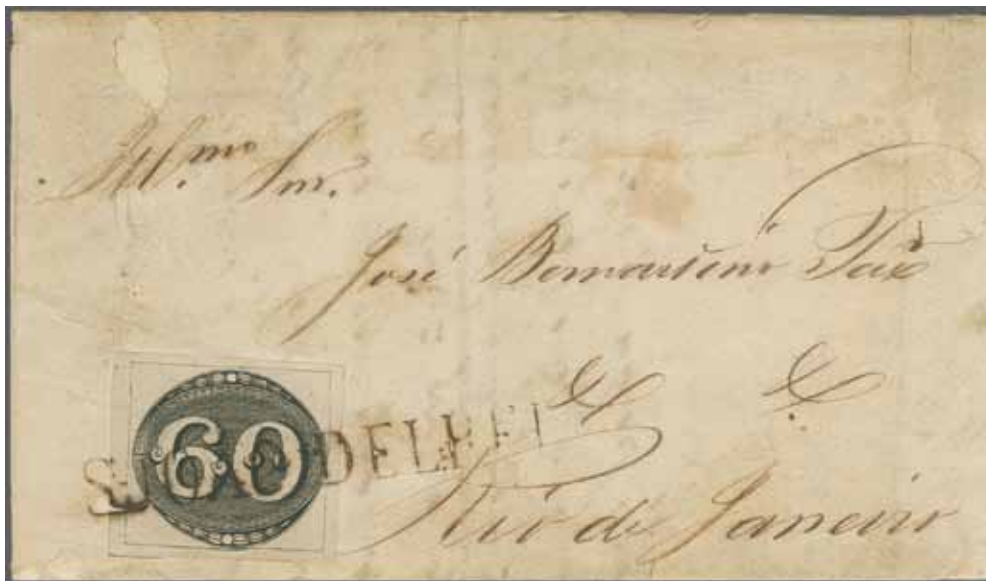 Ill.mo Snr.
José Bernardino
60
DELREI
Rio de Janeiro